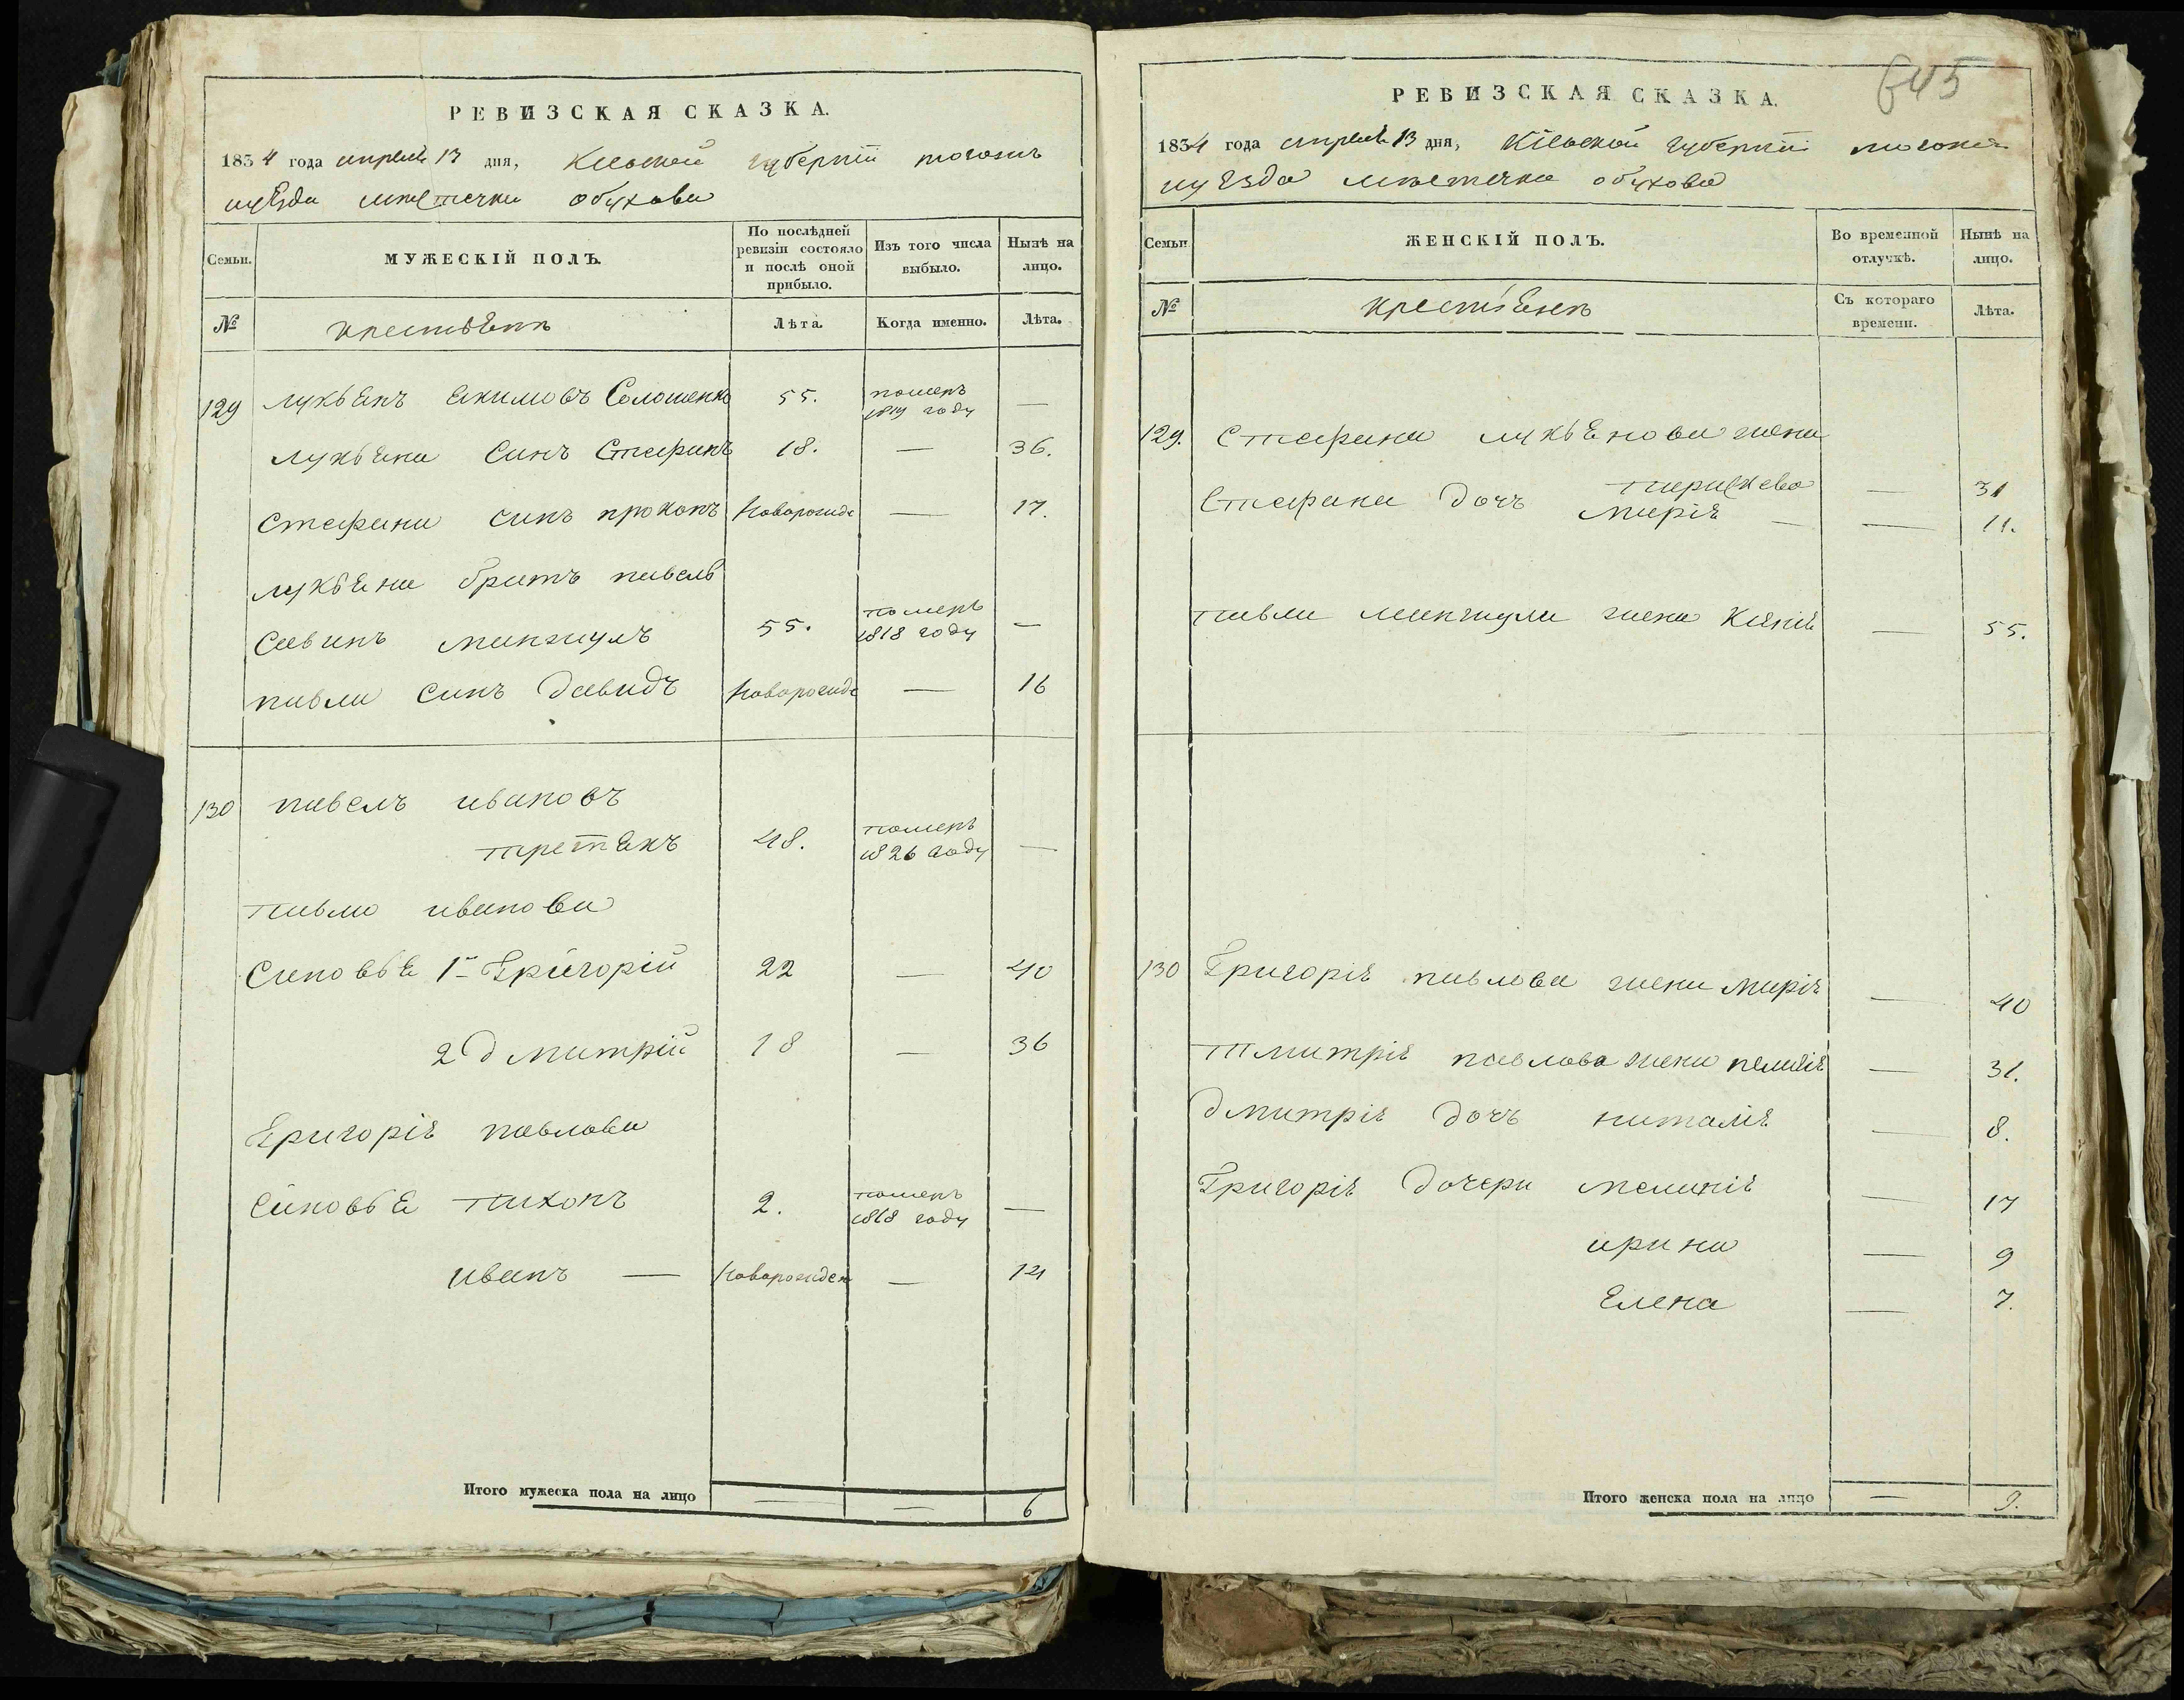 РЕВИЗСКАЯ СКАЗКА.
1834 года апреля 13 дня, Киевской губернии тогожъ
уезда местечка обухова
Семьи.
МУЖЕСКІЙ ПОЛЪ.
По послѣдней ревизіи состояло и послѣ оной прибыло.
Изъ того числа выбыло.
Нынѣ на лицо.
№
крестьянъ
Лѣта.
Когда именно.
Лѣта.
129 лукьянъ Акимовъ Соломенко 55. померъ году —
лукьяна синъ Стефанъ 18. — 36.
Стефана синъ прокопъ Новорожде — 17.
лукьяна братъ павелъ
Савинъ 55. померъ 1818 году —
павла синъ давидъ Новорожде — 16
130 павелъ ивановъ
третякъ 48. померъ 1826 году —
павла иванова
Синовья 1й Григорій 22 — 40
2 дмитрій 18 — 36
Григорія павлова
Синовья тихонъ 2. померъ 1818 году —
иванъ — Новорожден — 14
Итого мужеска пола на лицо — — 6
645
РЕВИЗСКАЯ СКАЗКА.
1834 года апреля 13 дня, Кіевской губерніи тогожъ
уезда местечка обухова
Семьи
ЖЕНСКІЙ ПОЛЪ.
Во временной отлучкѣ.
Нынѣ на лицо.
№
крестянъ
Съ котораго времени.
Лѣта.
129. Стефана лукьянова жена
— 31
Стефана дочъ марія — — 11.
павла жена — 55.
130 Григорія павлова жена марія — 40
тмитрія павлова жена — 31.
дмитрія дочъ наталія — 8.
Григорія дочери меланія — 17
ирина — 9
Елена — 7.
Итого женска пола на лицо — 9.